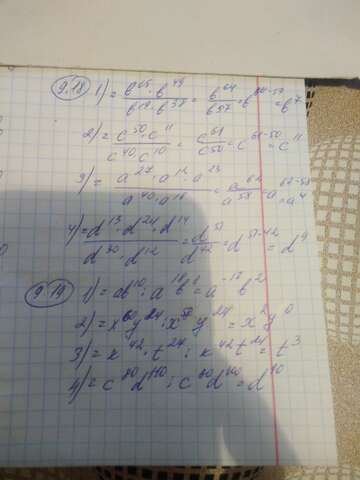 9.18 1) = в^65 · в^49 / в^19 · в^38 = в^64 / в^57 = в^64-57 = в^7
2) = c^50 · c^11 / c^40 · c^10 = c^61 / c^50 = c^61-50 = c^11
3) = a^27 · a^12 · a^23 / a^40 · a^18 = a^62 / a^58 = a^62-58 = a^4
4) = d^13 · d^24 · d^14 / d^30 · d^12 = d^51 / d^42 = d^51-42 = d^9
9.19 1) = : a = a^-17 b^2
2) = x^60 y^24 : x y^24 = x^2 y^0
3) = k^42 · t^24 : k^42 t = t^3
4) = c^80 d : c^80 d = d^10